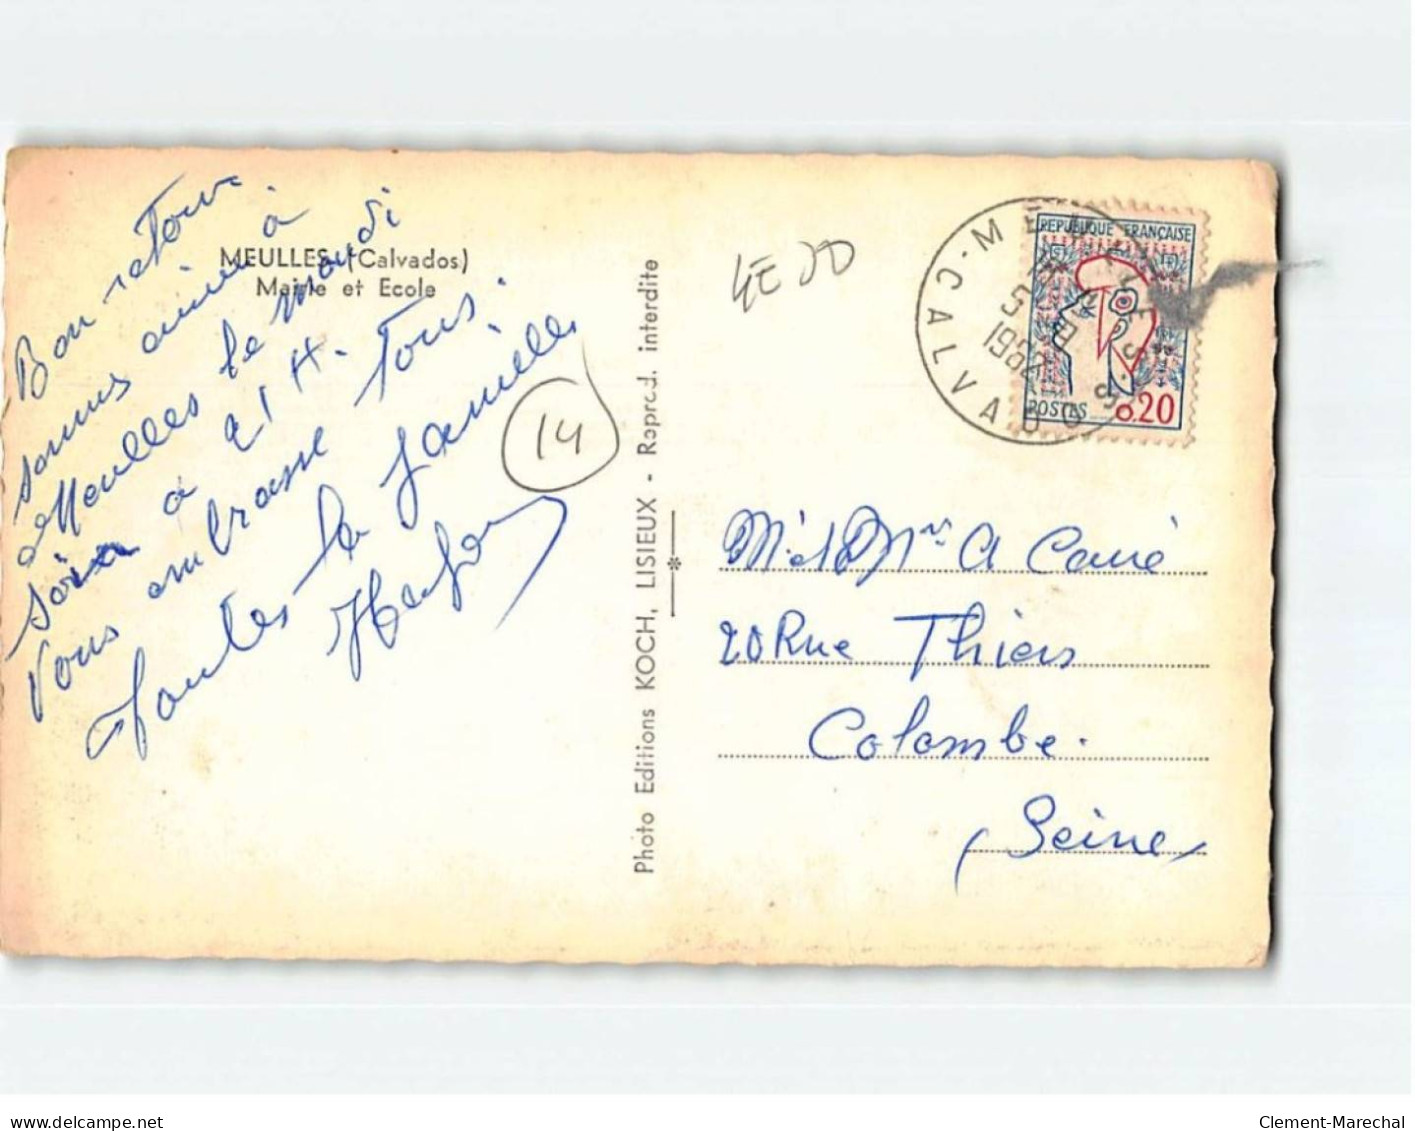 MEULLES (Calvados)
Mairie et Ecole
Bon retour
somes arrivé à
Meulles le mardi
soir à 21 H.
Vous embrasse Tous.
toutes la famille
14
Photo Editions KOCH, LISIEUX - Reprod. interdite
MEULLES
CALVADOS
5
1962
REPUBLIQUE FRANÇAISE
POSTES
0,20
Mr et Mme A Carré
20 Rue Thiers
Colombe.
(Seine)
delcampe.net
Clement-Marechal